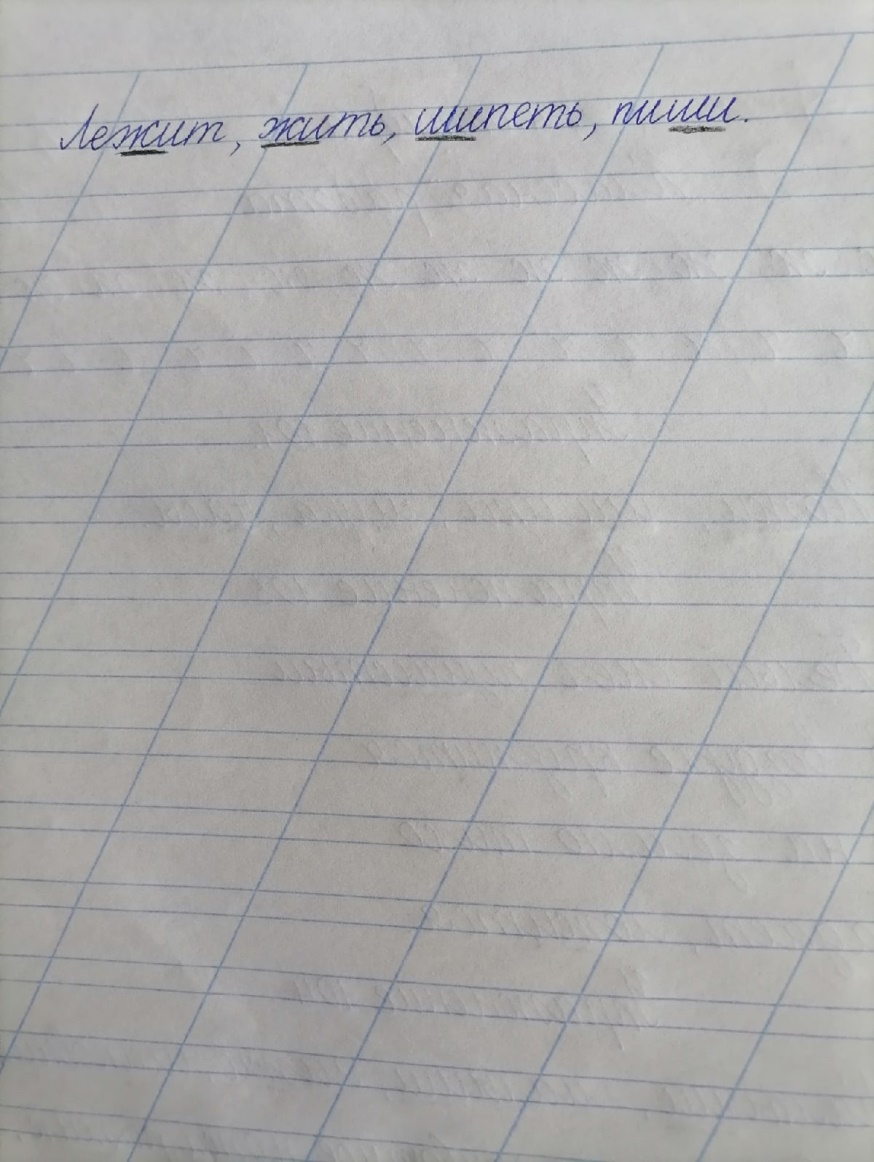 Лежит, жить, шипеть, пиши.